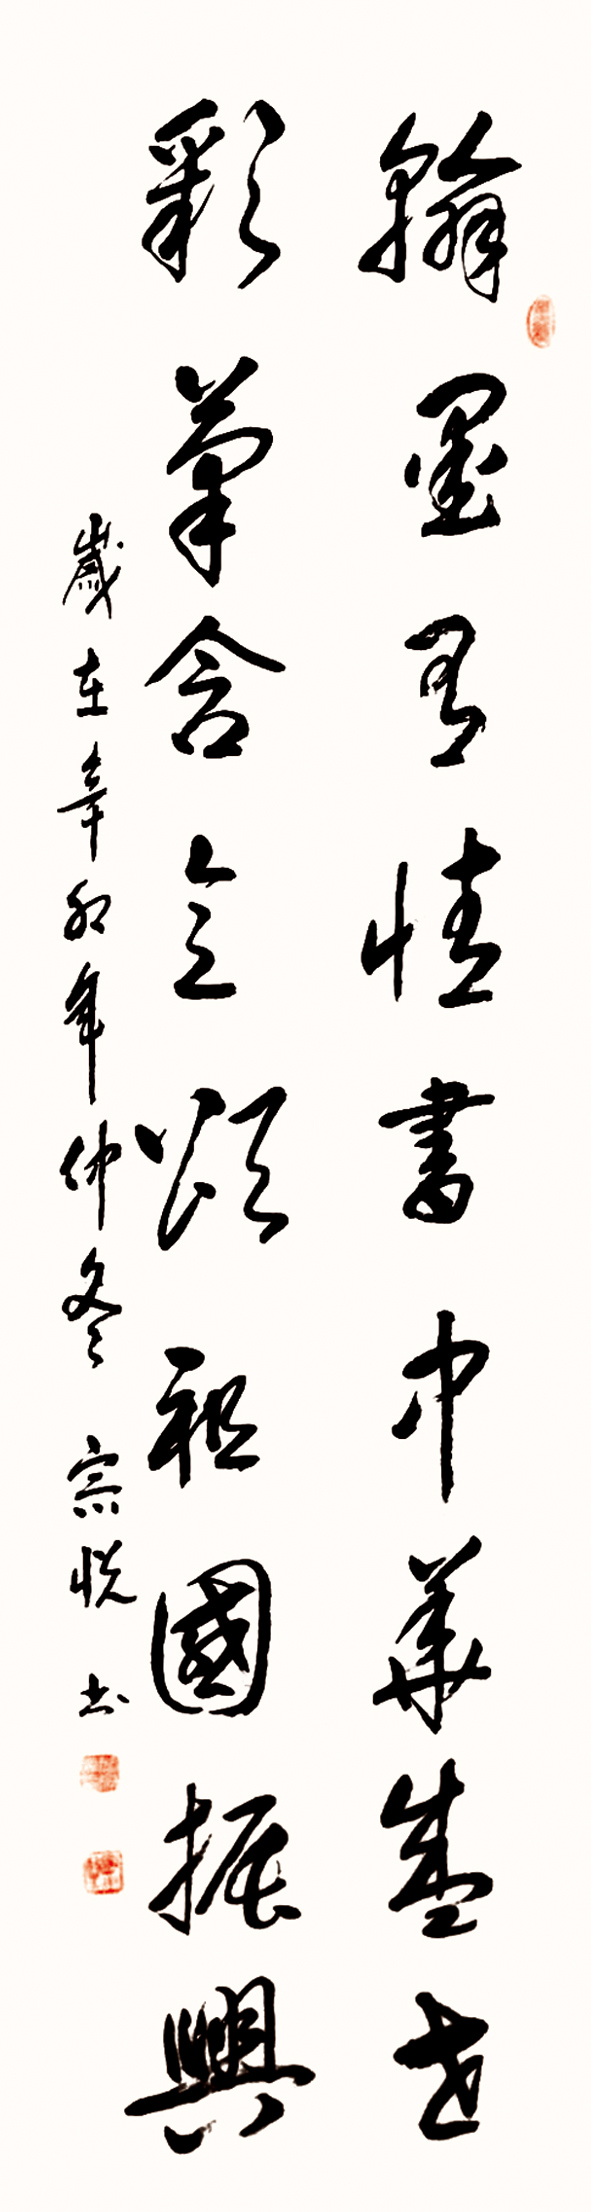 翰墨有情書中華盛世
彩筆含意頌祖國振興
歲在辛卯年仲冬 宗悦书